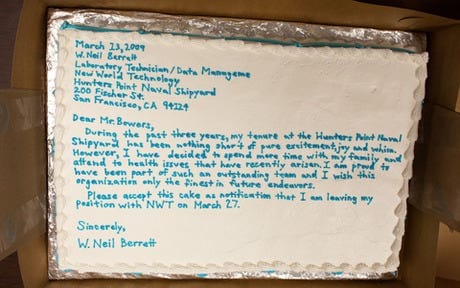 March 23, 2009
W. Neil Berrett
Laboratory Technician/Data Manageme
New World Technology
Hunters Point Naval Shipyard
200 Fischer St.
San Francisco, CA 94124
Dear Mr. Bowers,
During the past three years, my tenure at the Hunters Point Naval
Shipyard has been nothing short of pure excitement, joy and whim.
However, I have decided to spend more time with my family and
attend to health issues that have recently arisen. I am proud to
have been part of such an outstanding team and I wish this
organization only the finest in future endeavors.
Please accept this cake as notification that I am leaving my
position with NWT on March 27.
Sincerely,
W. Neil Berrett